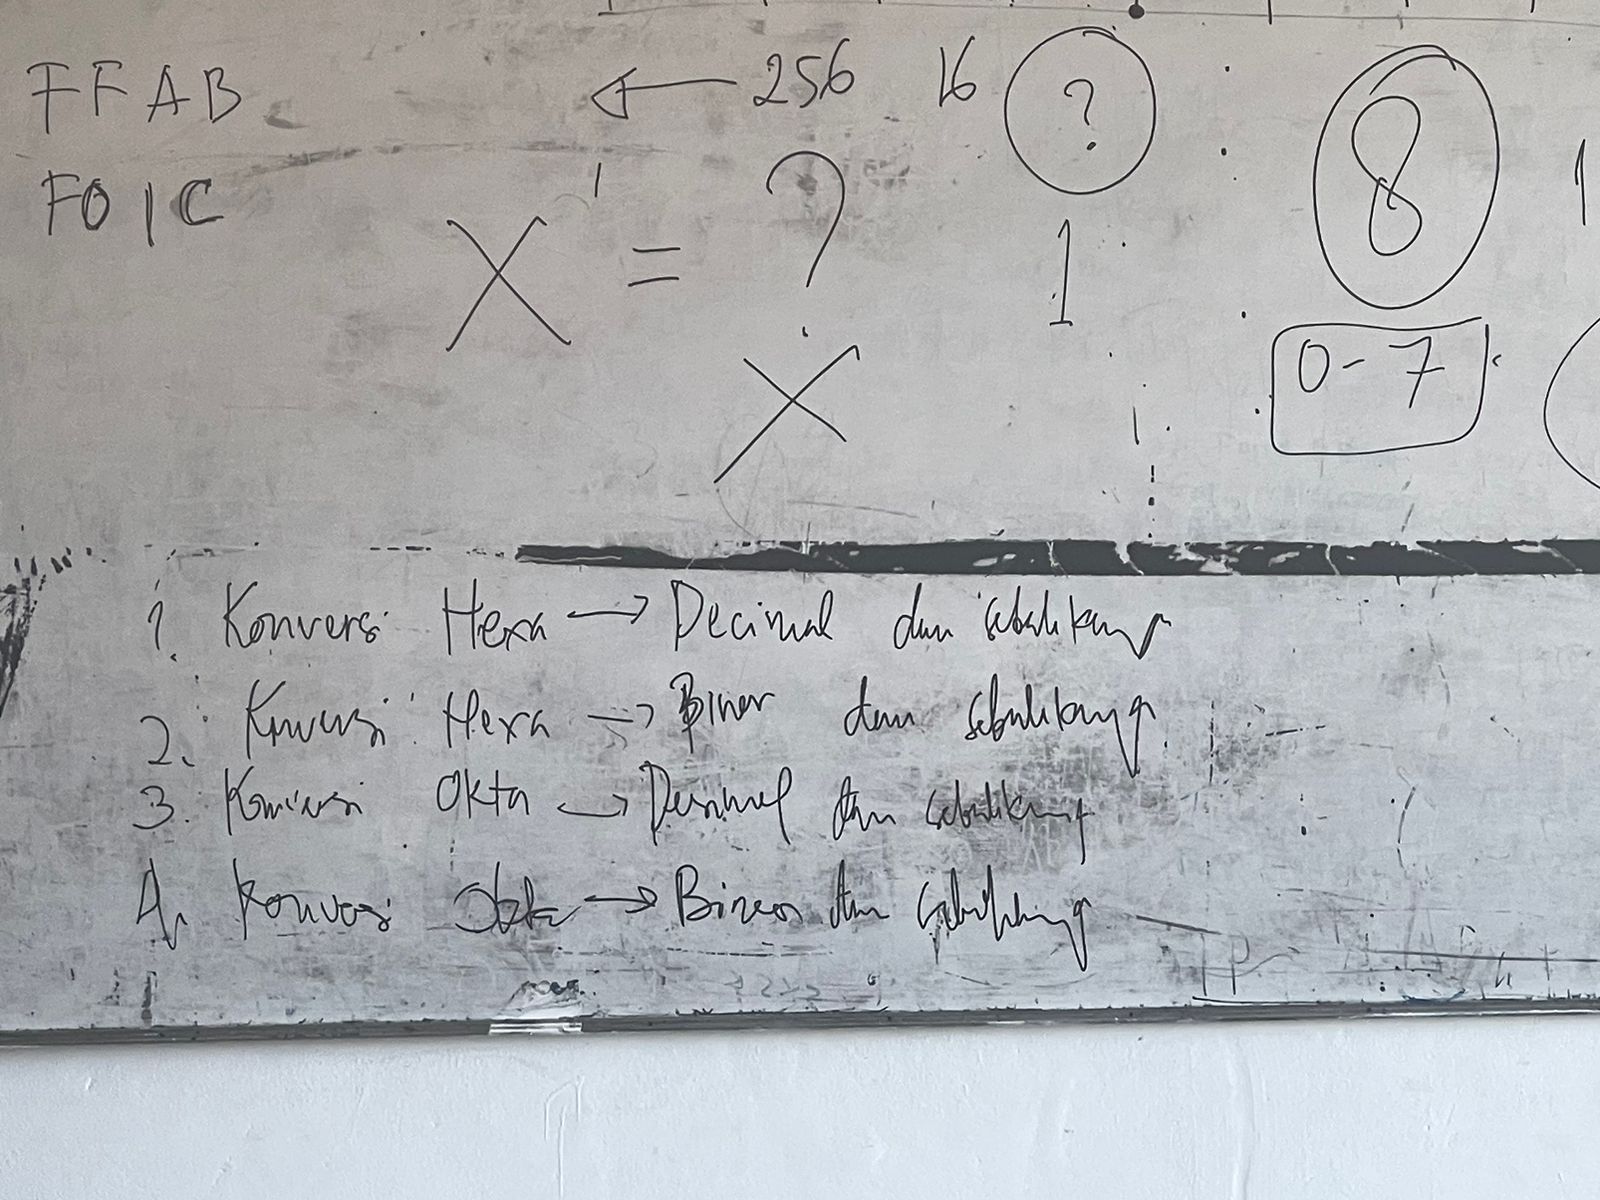 FFAB ← 256 16 ? 8 1
F01C X = ? 1
0-7
X
1. Konversi Hexa → Decimal dan sebaliknya
2. Konversi Hexa → Biner dan sebaliknya
3. Konversi Okta → Desimal dan sebaliknya
4. Konversi Okta → Biner dan sebaliknya